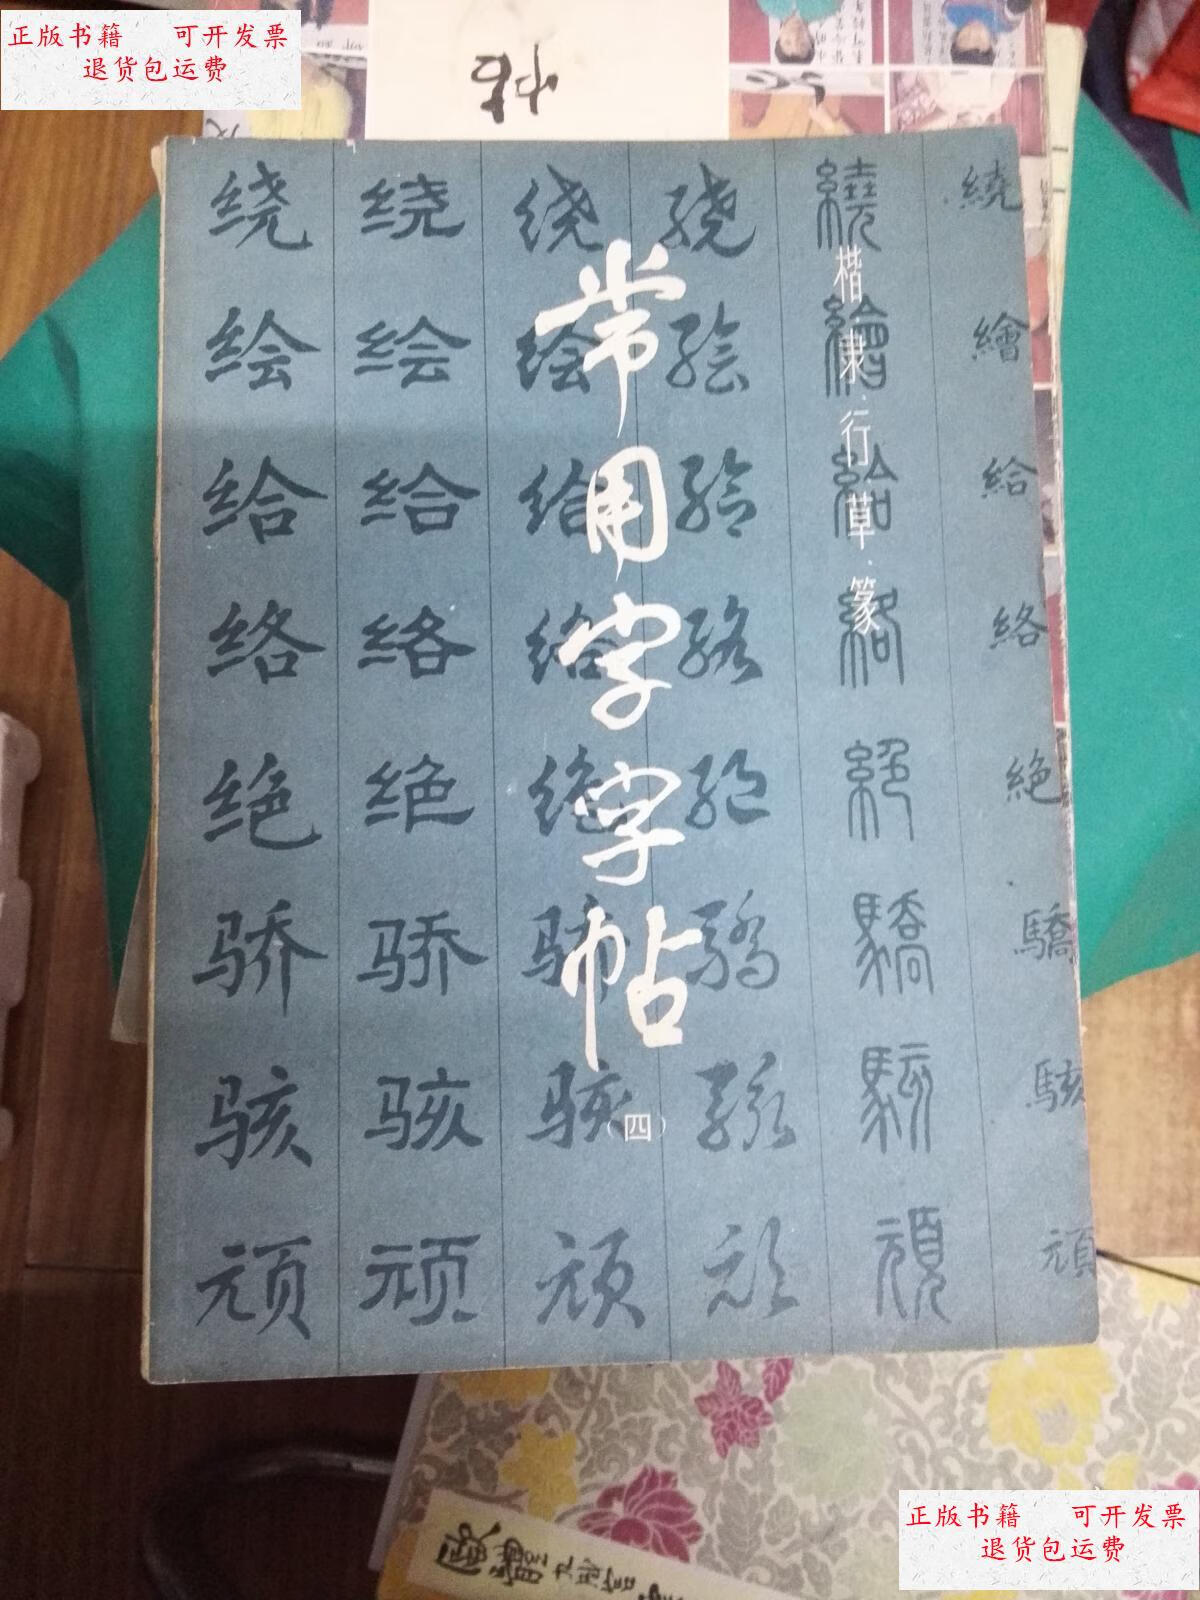 正版书籍 可开发票
退货包运费
绕 绕 绕 绕 繞 繞
绘 绘 绘 绘 繪 繪
给 给 给 给 給 給
络 络 络 络 絡 絡
绝 绝 绝 绝 絕 絶
骄 骄 骄 骄 驕 驕
骇 骇 骇 骇 駭 駭
顽 顽 顽 顽 頑 頑
常用字字帖
(四)
楷·隶·行·草·篆
正版书籍 可开发票
退货包运费